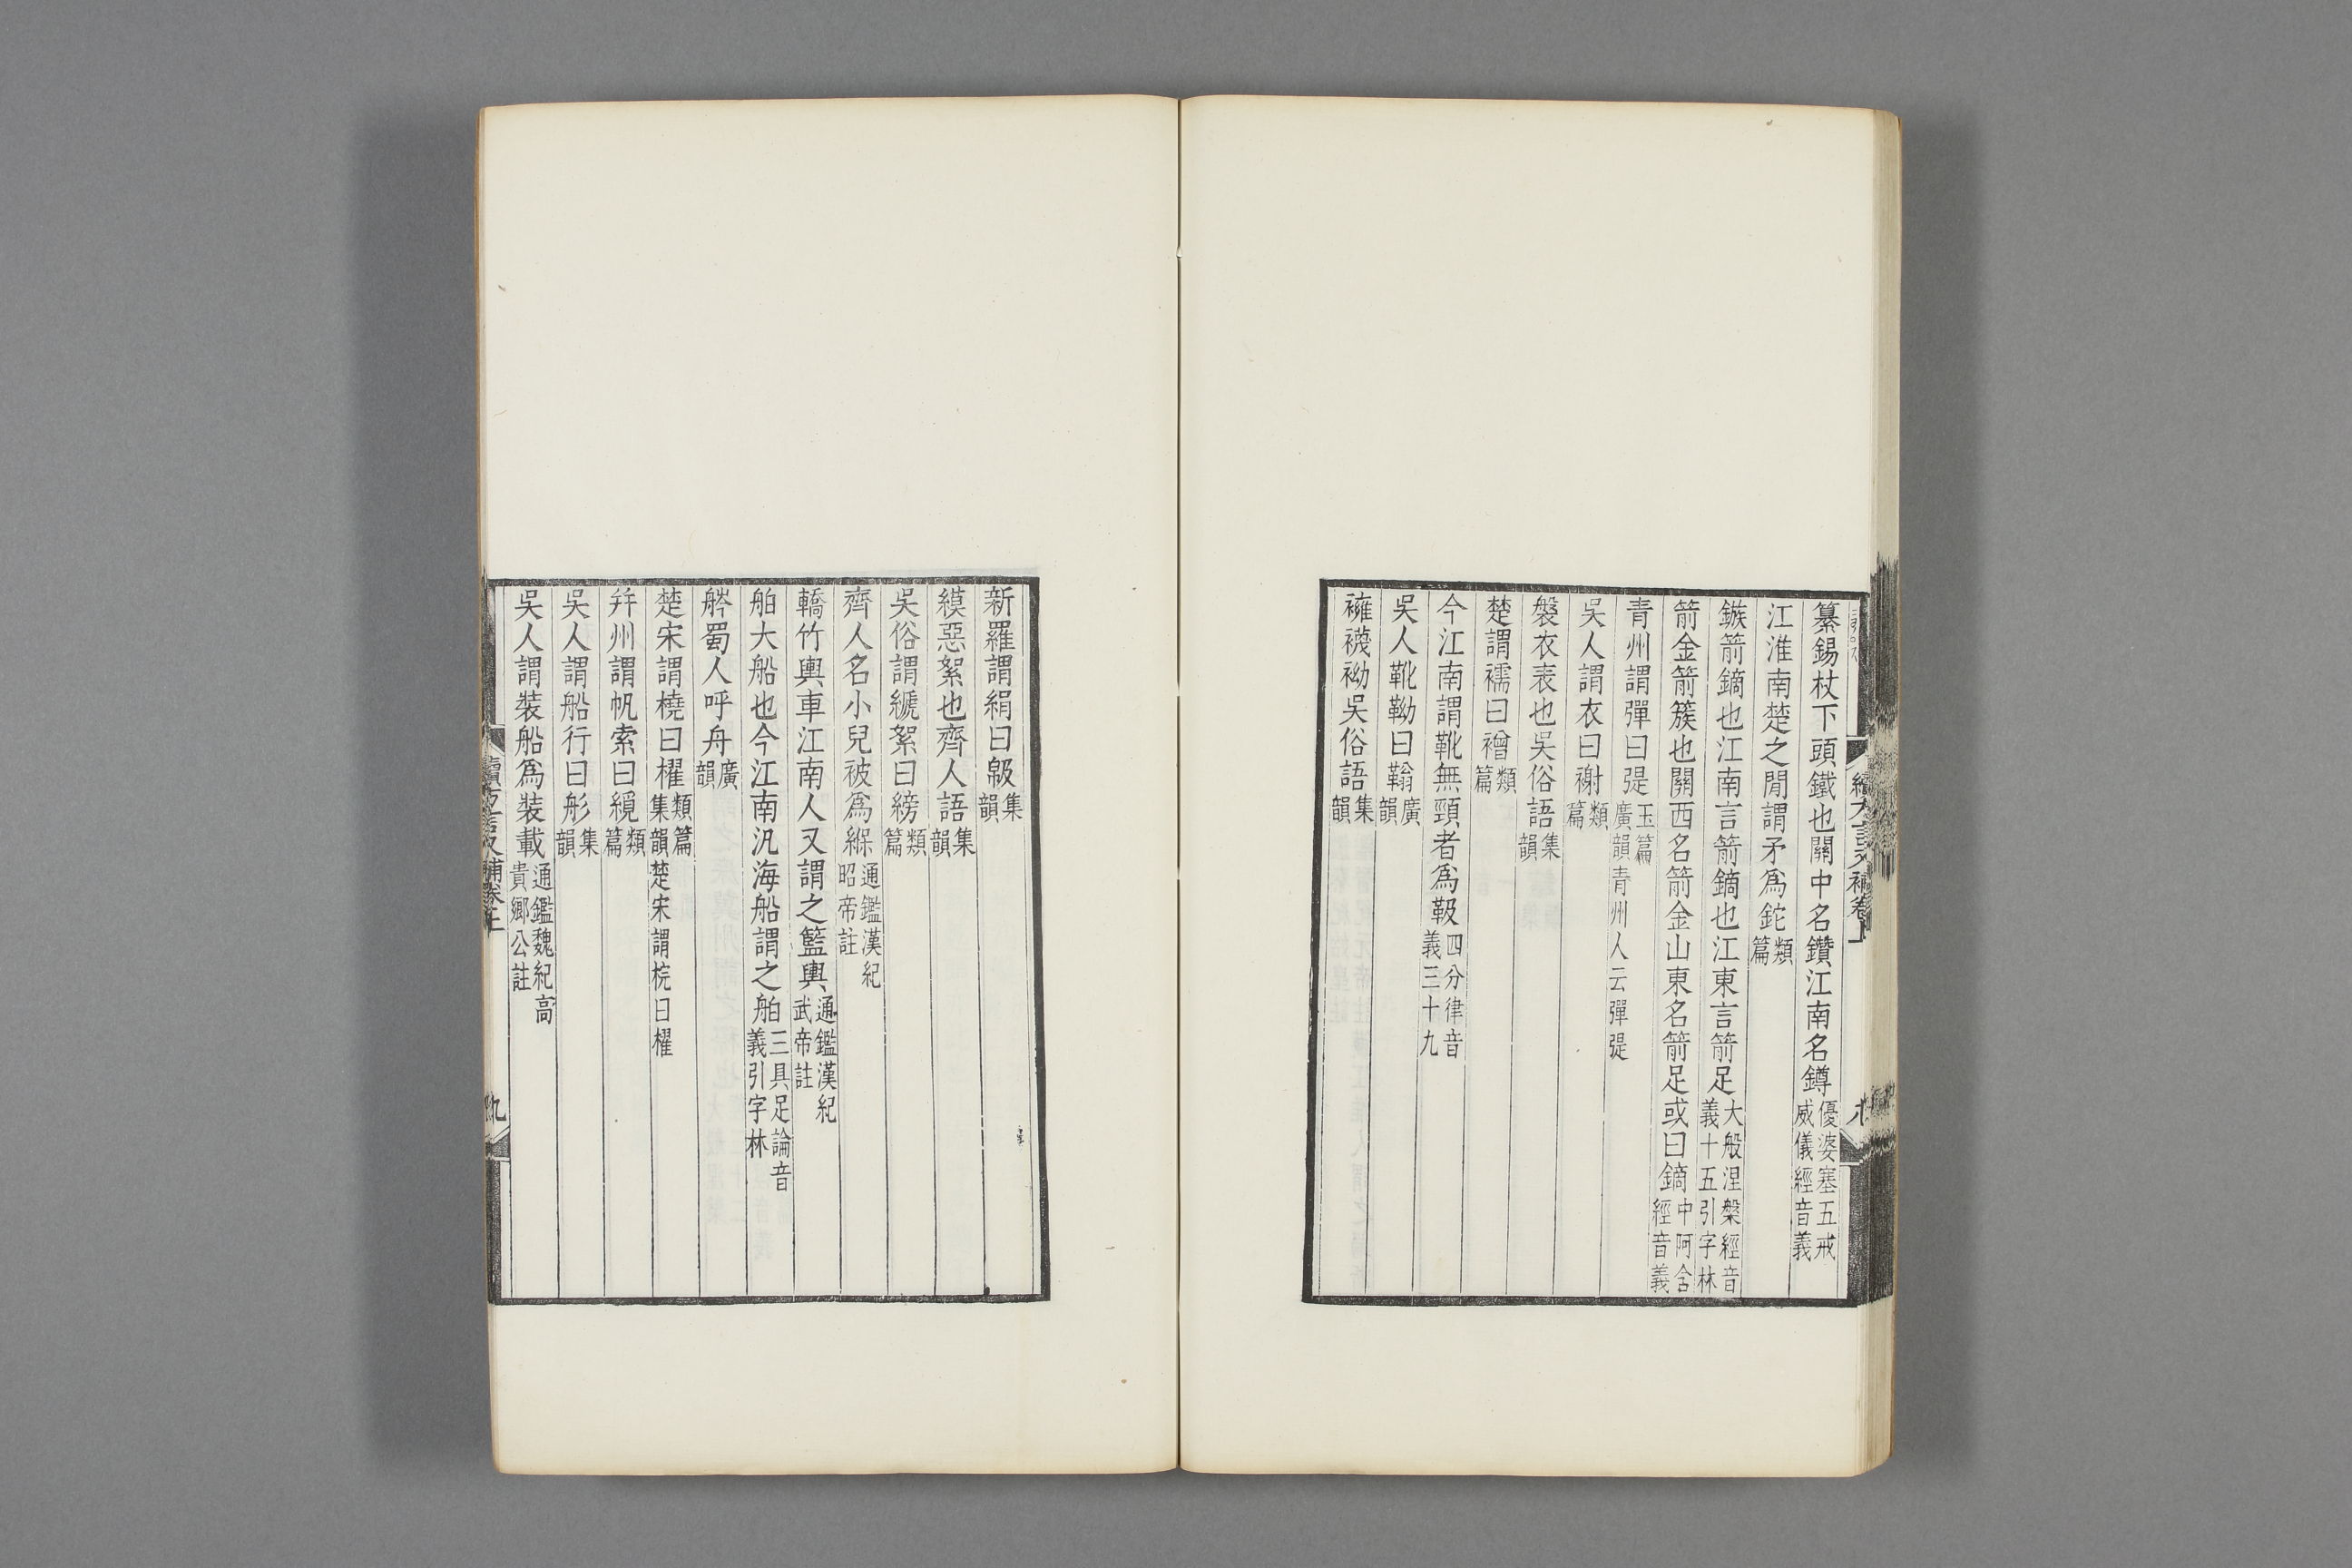 纂錫杖下頭鐵也關中名鑽江南名鐏優婆塞五戒威儀經音義
江淮南楚之閒謂矛爲鉈類篇
鏃箭鏑也江南言箭鏑也江東言箭足大般涅槃經音義十五引字林
箭金箭簇也關西名箭金山東名箭足或曰鏑中阿含經音義
青州謂彈曰弫玉篇廣韻青州人云彈弫
吳人謂衣曰𧛾類篇
褩衣表也吳俗語集韻
楚謂襦曰襘類篇
今江南謂靴無頸者爲靸四分律音義三十九
吳人靴靿曰䩺廣韻
襱襪袎吳俗語集韻
新羅謂絹曰䋲集韻
縸惡絮也齊人語集韻
吳俗謂䌳絮曰縍類篇
齊人名小兒被爲緥通鑑漢紀昭帝註
轎竹輿車江南人又謂之籃輿通鑑漢紀武帝註
舶大船也今江南汎海船謂之舶三具足論音義引字林
艂蜀人呼舟廣韻
楚宋謂橈曰櫂類篇集韻楚宋謂梡曰櫂
幷州謂帆索曰䋿類篇
吳人謂船行曰彤集韻
吳人謂裝船爲裝載通鑑魏紀高貴鄉公註
續方言又補卷上
九